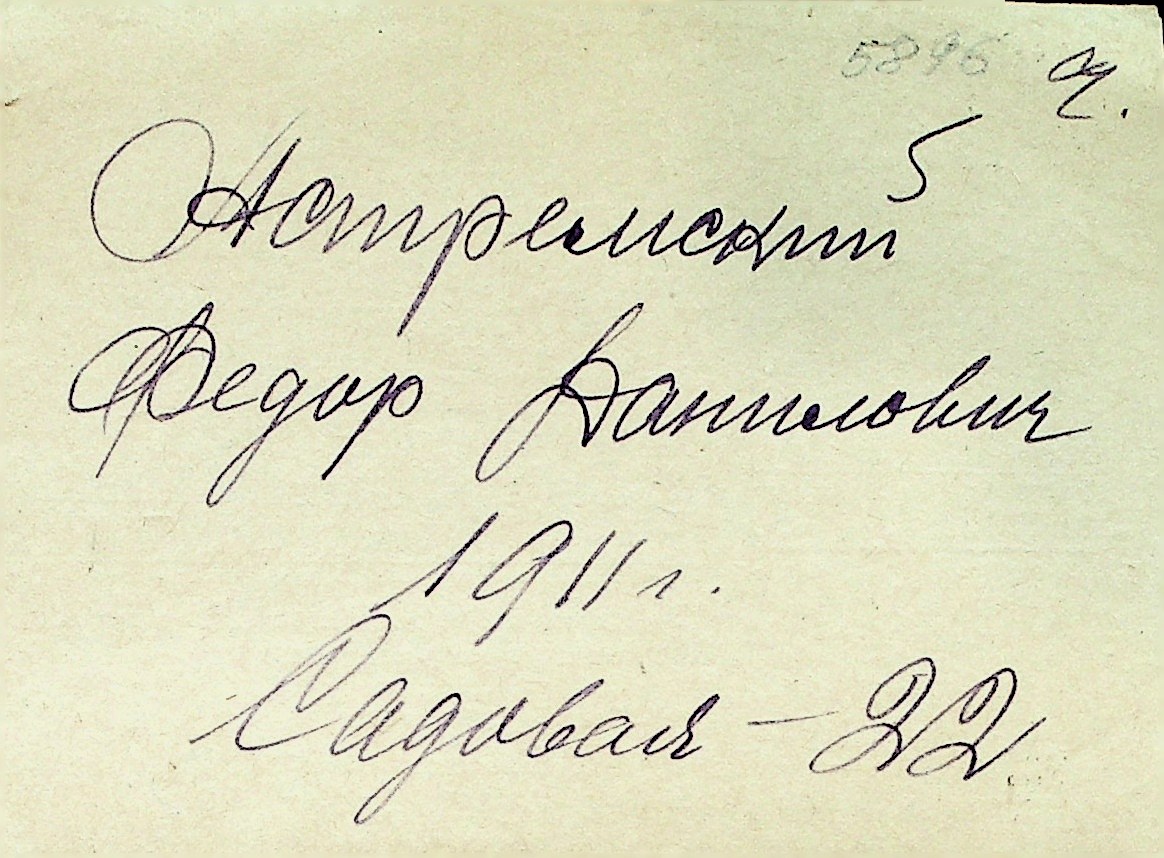 5896 Я.
Ястремский
Федор Данилович
1911 г.
Садовая - 22